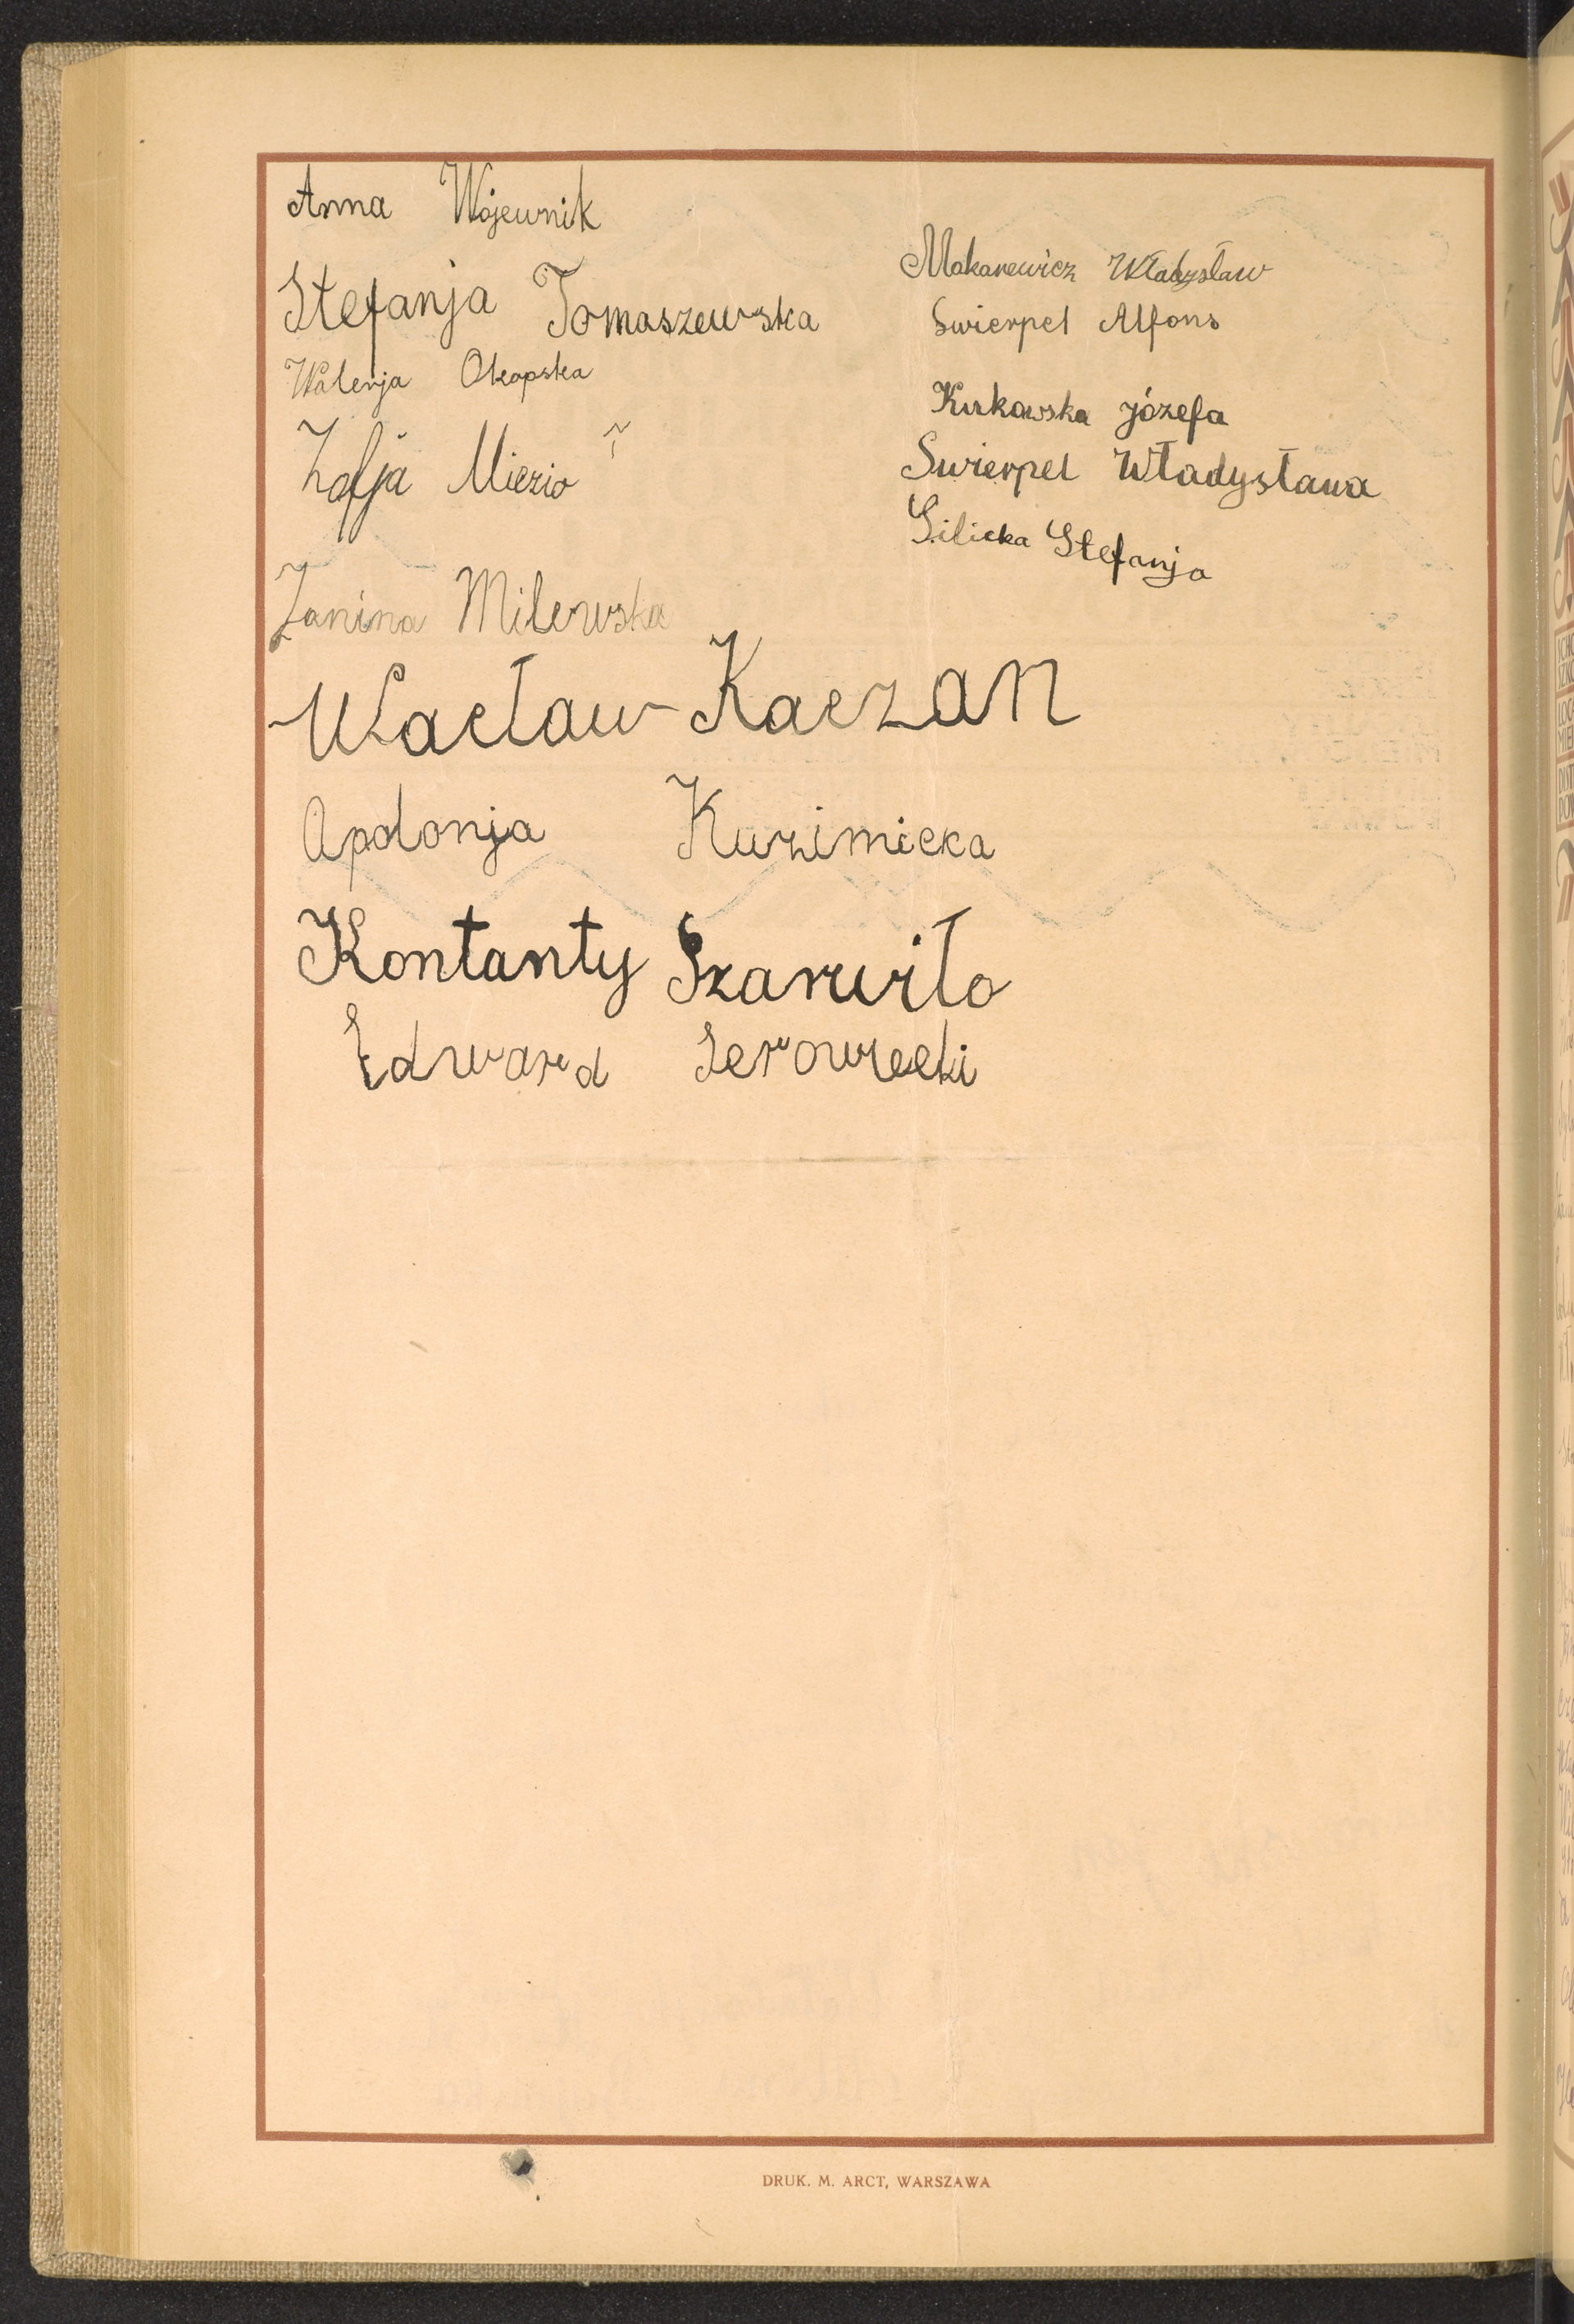 Anna Wojewnik
Stefanja Tomaszewska
Walerja Okopska
Zofja Miezio
Janina Milewska
Wacław Kaczan
Apolonja Kuzimicka
Kontanty Szarwiło
Edward Serowiecki
Makarewicz Władzsław
Swierpel Alfons
Kurkowska Józefa
Swierpel Władysława
Gilicka Stefanja
DRUK. M. ARCT, WARSZAWA